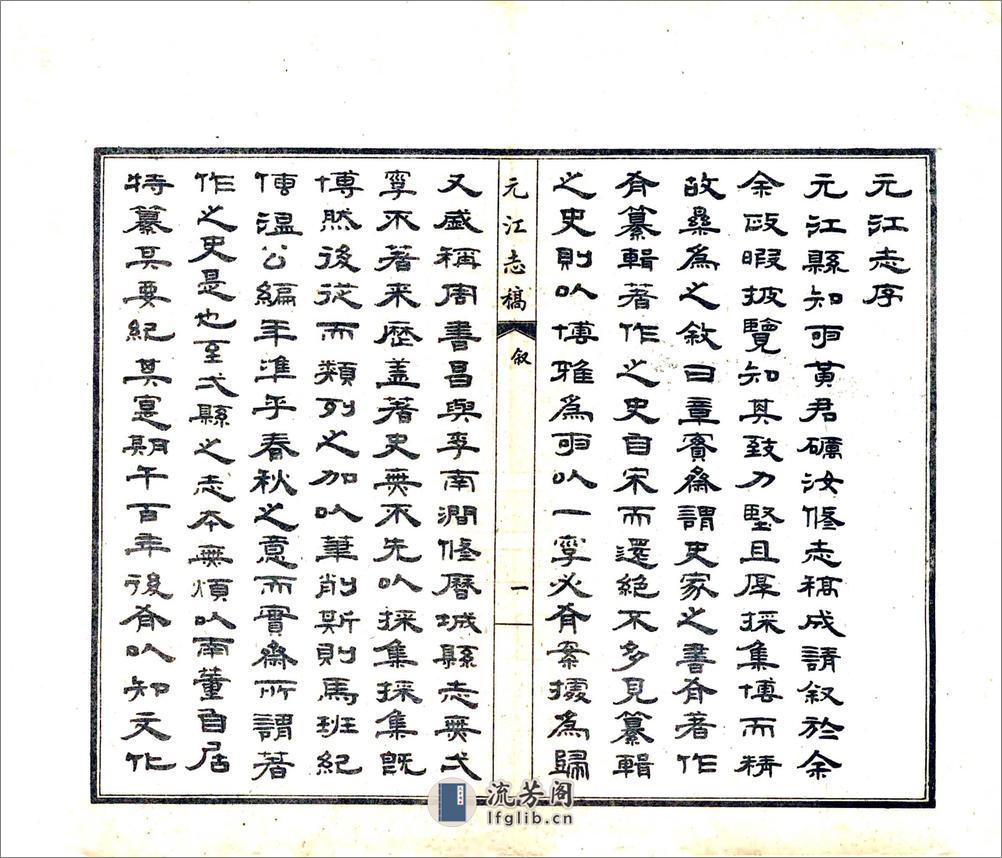 元江志序
元江縣知事黃君礪汝脩志稿成請叙於余
余政暇披覽知其致力堅且厚採集博而精
故樂為之敘曰章實齋謂史家之書有著作
有纂輯著作之史自宋而還絕不多見纂輯
之史則以博雅為事以一字必有案據為歸
元江志稿
叙
一
又盛稱周書昌與李南澗脩曆城縣志無一
字不著来歷盖著史無不先以採集採集旣
博然後從而類列之加以筆削斯則馬班紀
傳溫公編年準乎春秋之意而實齋所謂著
作之史是也至一縣之志本無煩以南董自居
特纂其要紀其實期千百年後有以知文化
流芳阁
lfglib.cn